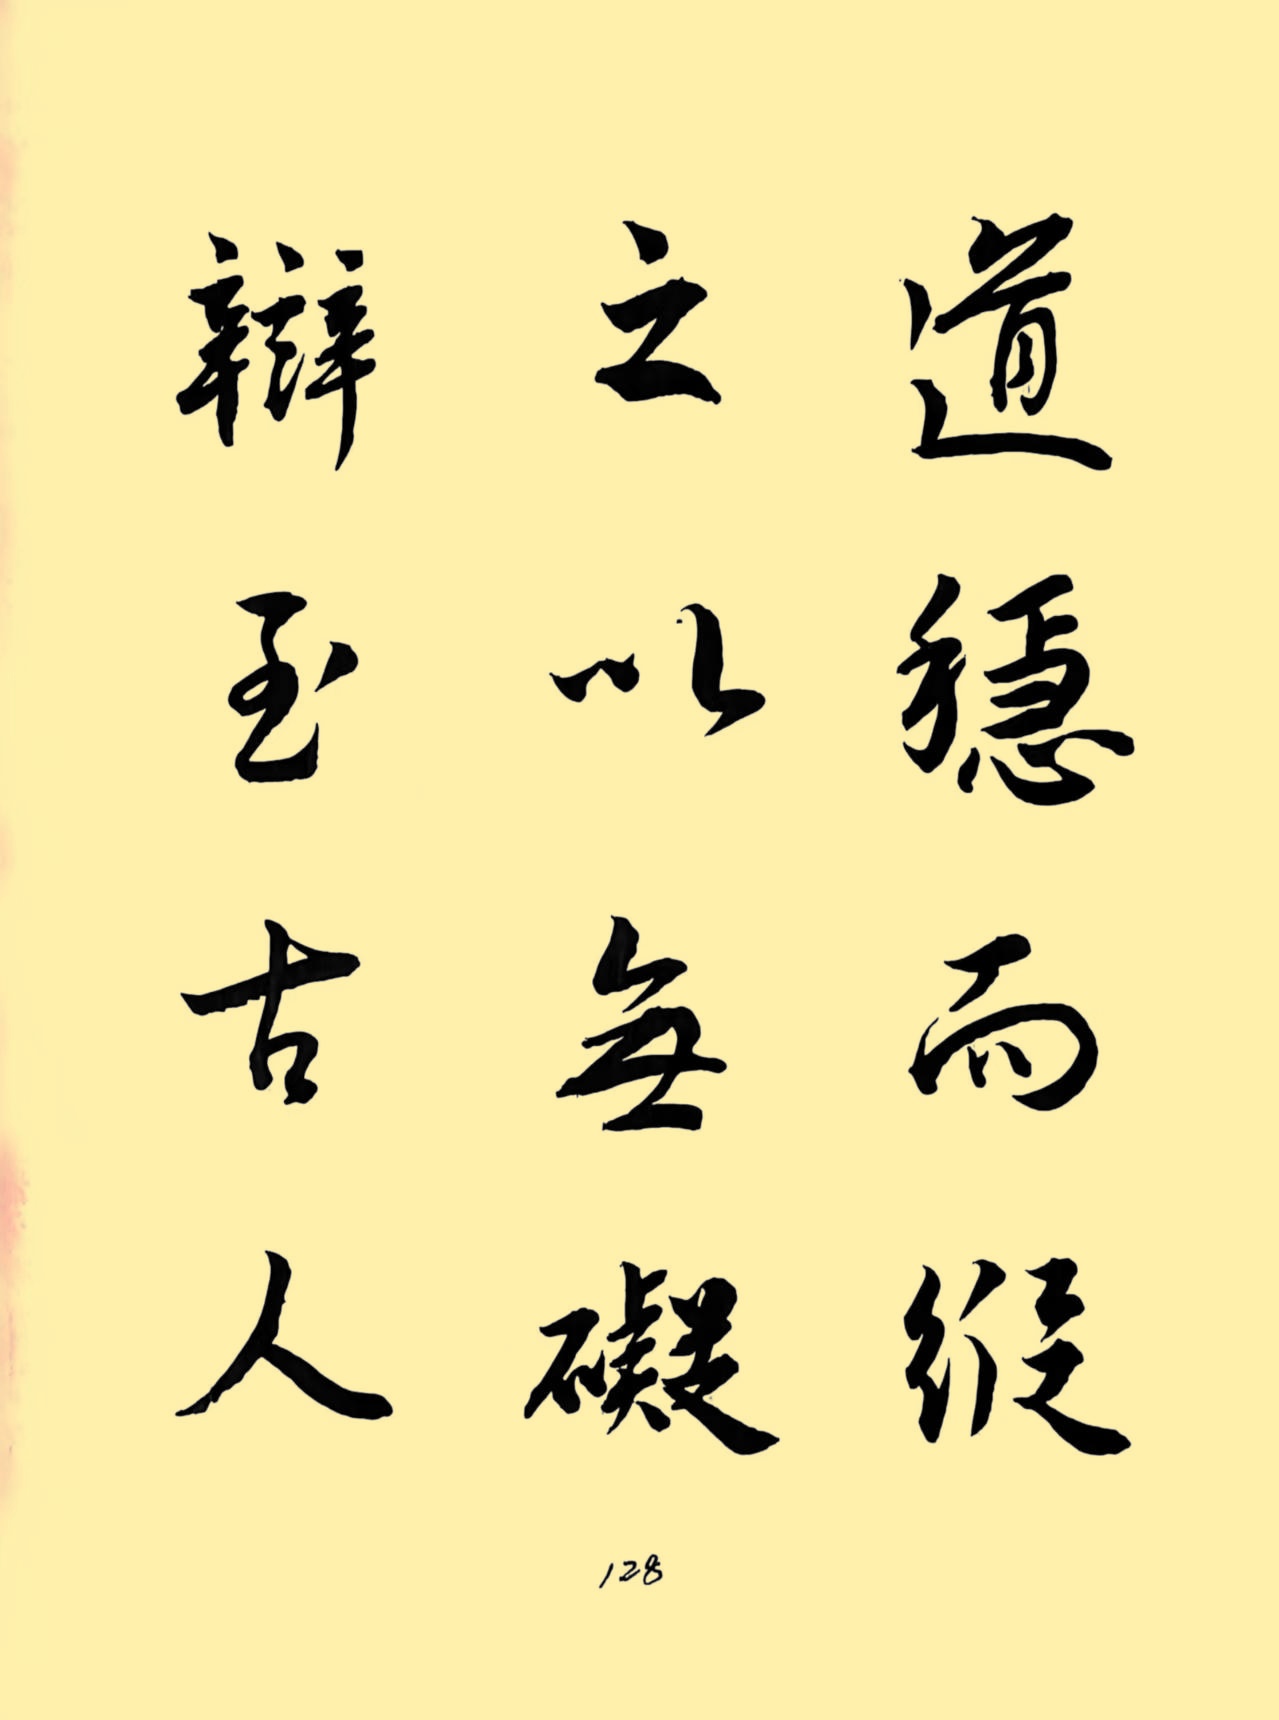 道穩而縱
之以無礙
辯至古人
128